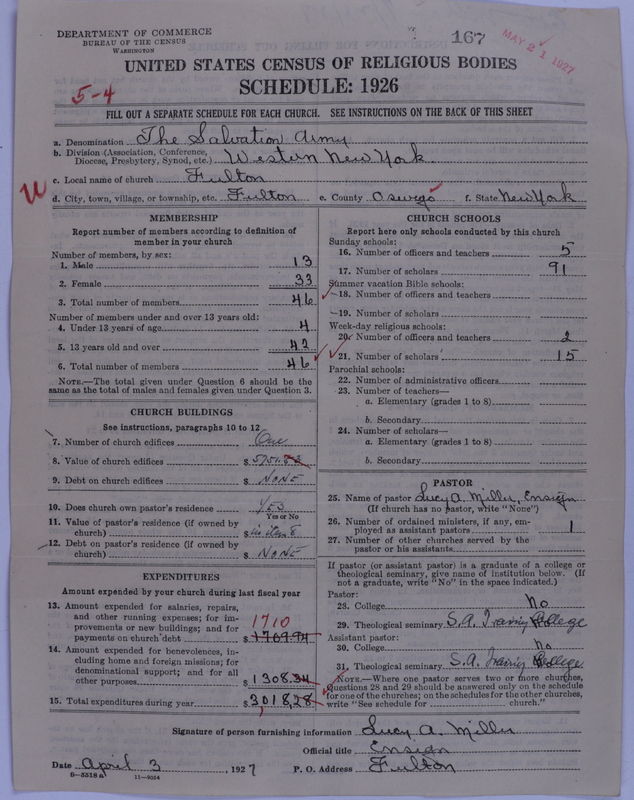 DEPARTMENT OF COMMERCE
BUREAU OF THE CENSUS
WASHINGTON
167
MAY 21 1927
UNITED STATES CENSUS OF RELIGIOUS BODIES
SCHEDULE: 1926
5-4
FILL OUT A SEPARATE SCHEDULE FOR EACH CHURCH. SEE INSTRUCTIONS ON THE BACK OF THIS SHEET
a. Denomination The Salvation Army
b. Division (Association, Conference, Diocese, Presbytery, Synod, etc.) Western New York
c. Local name of church Fulton
d. City, town, village, or township, etc. Fulton e. County Oswego f. State New York
MEMBERSHIP
Report number of members according to definition of member in your church
Number of members, by sex:
1. Male 13
2. Female 33
3. Total number of members 46
Number of members under and over 13 years old:
4. Under 13 years of age 4
5. 13 years old and over 42
6. Total number of members 46
NOTE.—The total given under Question 6 should be the same as the total of males and females given under Question 3.
CHURCH BUILDINGS
See instructions, paragraphs 10 to 12
7. Number of church edifices One
8. Value of church edifices $
9. Debt on church edifices $ NONE
10. Does church own pastor's residence YES
Yes or No
11. Value of pastor's residence (if owned by church) $
12. Debt on pastor's residence (if owned by church) $ NONE
EXPENDITURES
Amount expended by your church during last fiscal year
13. Amount expended for salaries, repairs, and other running expenses; for improvements or new buildings; and for payments on church debt $ 1709.94
1710
14. Amount expended for benevolences, including home and foreign missions; for denominational support; and for all other purposes $ 1308.34
15. Total expenditures during year $ 3018.28
CHURCH SCHOOLS
Report here only schools conducted by this church
Sunday schools:
16. Number of officers and teachers 5
17. Number of scholars 91
Summer vacation Bible schools:
18. Number of officers and teachers
19. Number of scholars
Week-day religious schools:
20. Number of officers and teachers 2
21. Number of scholars 15
Parochial schools:
22. Number of administrative officers
23. Number of teachers—
a. Elementary (grades 1 to 8)
b. Secondary
24. Number of scholars—
a. Elementary (grades 1 to 8)
b. Secondary
PASTOR
25. Name of pastor Lucy A. Miller, Ensign
(If church has no pastor, write "None")
26. Number of ordained ministers, if any, employed as assistant pastors 1
27. Number of other churches served by the pastor or his assistants
If pastor (or assistant pastor) is a graduate of a college or theological seminary, give name of institution below. (If not a graduate, write "No" in the space indicated.)
Pastor:
28. College No
29. Theological seminary S.A. Training College
Assistant pastor:
30. College No
31. Theological seminary S.A. Training College
NOTE.—Where one pastor serves two or more churches, Questions 28 and 29 should be answered only on the schedule for one of the churches; on the schedules for the other churches, write "See schedule for church."
Signature of person furnishing information Lucy A. Miller
Official title Ensign
Date April 3, 1927 P. O. Address Fulton
8-5518a 11-9034